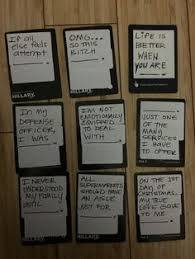 If all
else fails
attempt
OMG...
SO THIS
BITCH
LIFE IS
BETTER
WHEN
YOU ARE
IN MY
DEFENSE
OFFICER, I
WAS
I'M NOT
EMOTIONALLY
EQUIPPED
TO DEAL
WITH
JUST ONE
OF THE
MANY
SERVICES
I HAVE
TO OFFER
I NEVER
UNDERSTOOD
MY FAMILY
UNTIL
ALL
SUPERMARKETS
SHOULD HAVE
AN AISLE
JUST FOR
ON THE 1ST
DAY OF
CHRISTMAS
MY TRUE
LOVE GAVE
TO ME